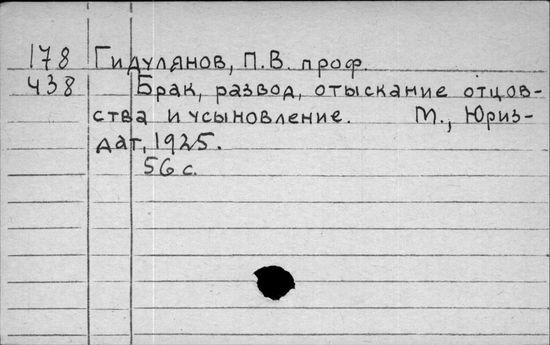 178 Гидулянов, П.В. проф.
438 Брак, развод, отыскание отцов-
ства и усыновление. М., Юриз-
дат, 1925.
56 с.